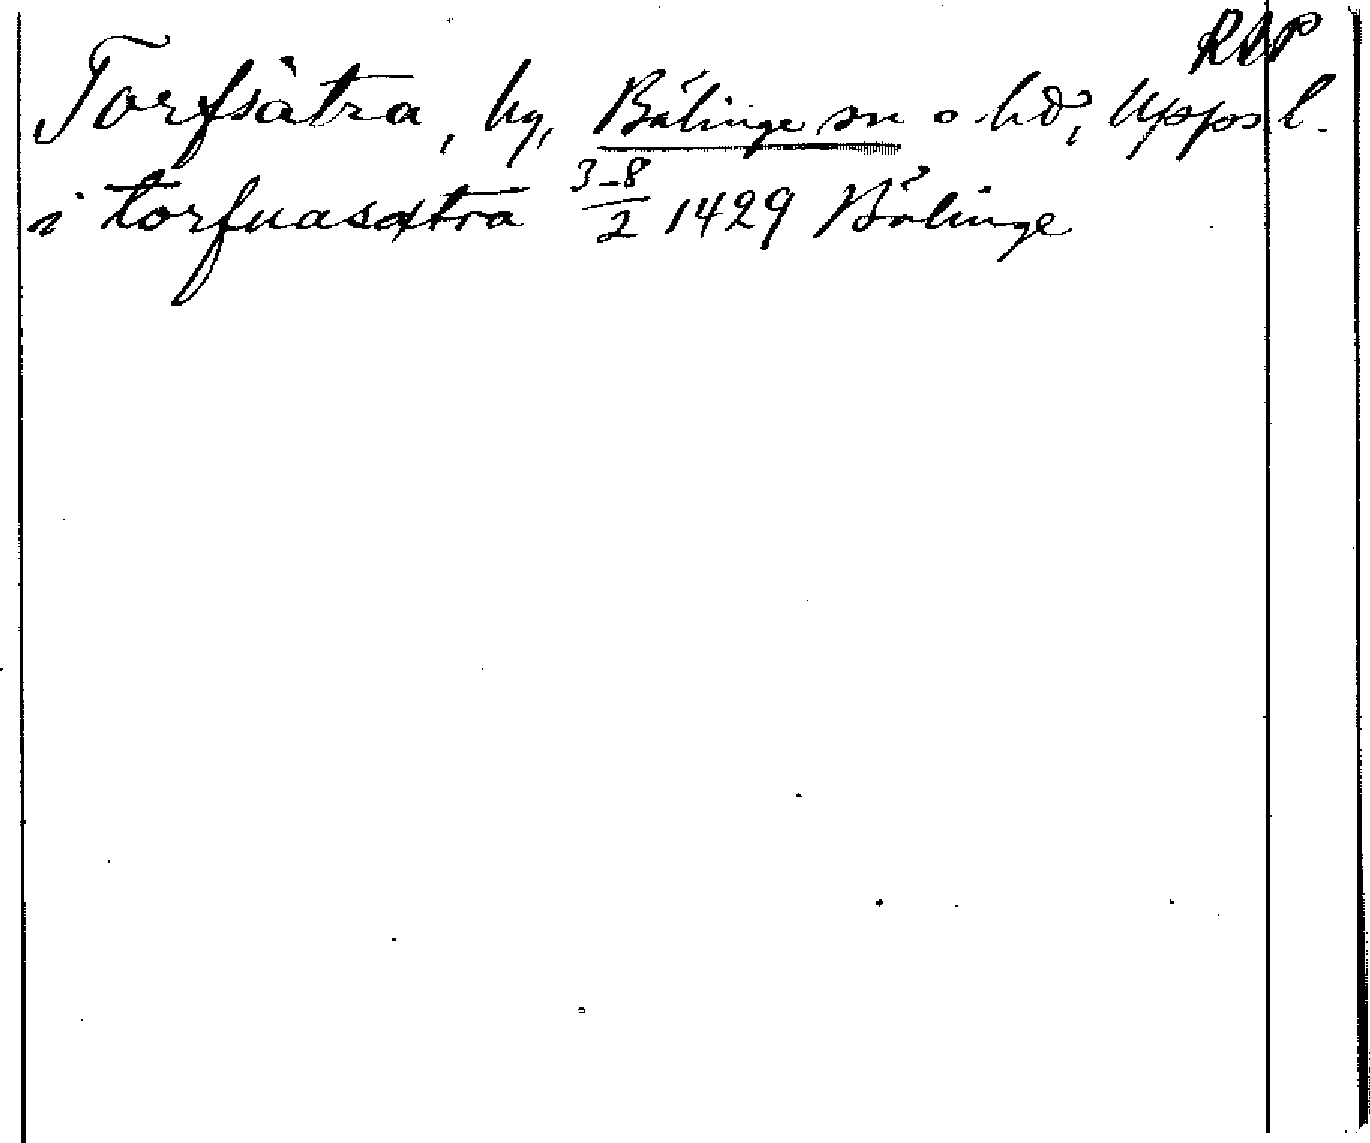 RAP
Torfsätra, by, Bälinge sn o hd, Upps l.
i torfuasætra 3-8/2 1429 Bälinge